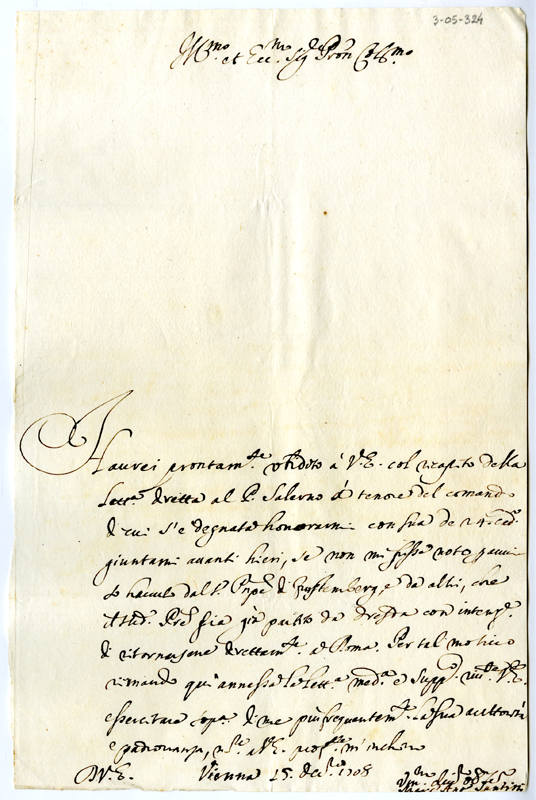 3-05-324
Ill.mo et Ecc.mo Sig.r Pron Col.mo
Haurei prontam.te obedito à V.E. col recapito della
Lett.a diretta al P. Salerno à tenore del comando
di cui s'è degnata honorarmi con sua de 24. cad.o
giuntami avanti hieri, se non mi fosse noto, havendo
lo havuto dal S. Pnpe di Furstemberg, e da altri, che
il sud.o Pre sia già partito da Dresda con intenz.e
di ritornarsene direttam.te à Roma. Per tal motivo
rimando qui annessa la Lett.a med.a e supp.o V.E.
essercitare sopra di me più frequentem.te la sua autorità
e padronanza, a V.E. m'inchino
D.V.E. Vienna 15. Dec.re 1708
Santini